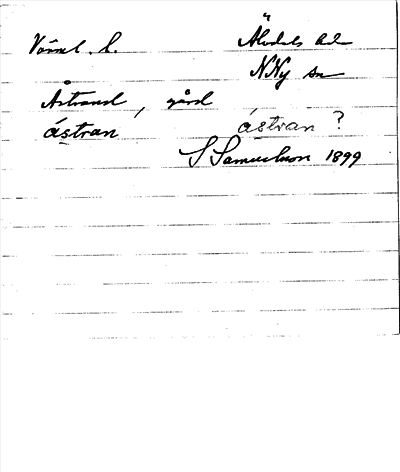 Värml. l. Älvdals hd
N Ny sn
Åstrand, gård
ástran ástran ?
S Samuelsson 1899